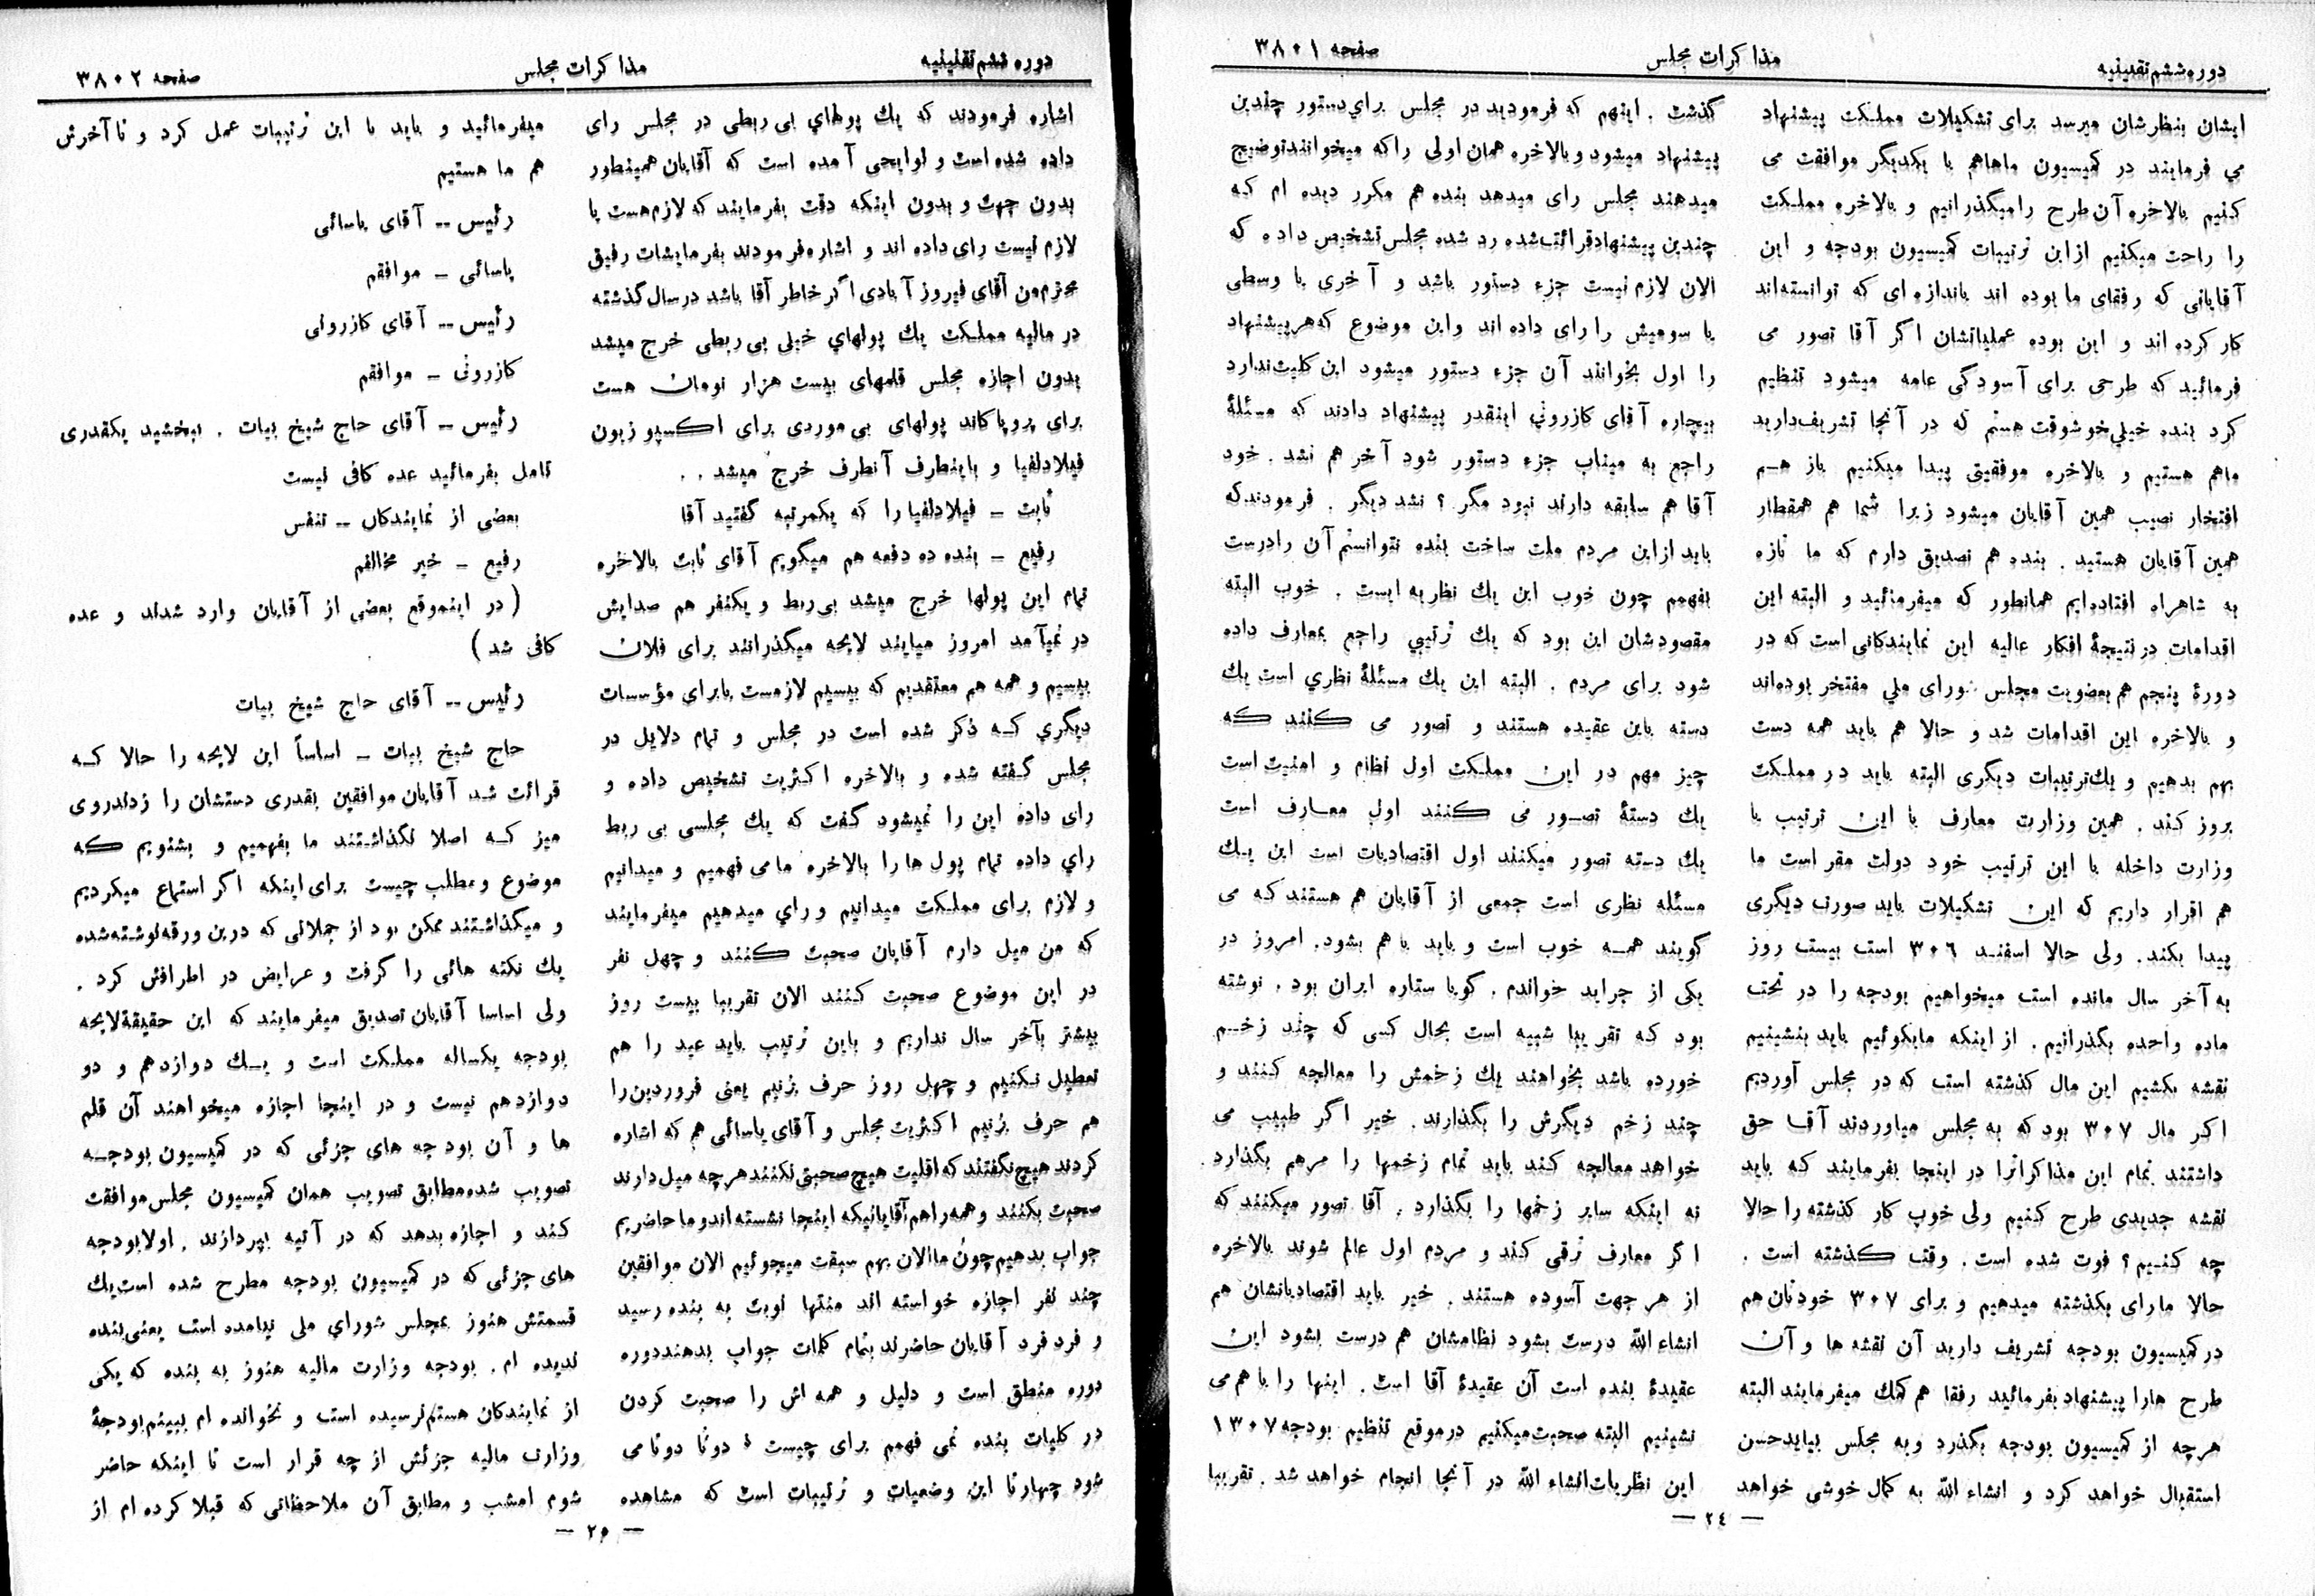 دوره ششم تقنینیه
مذاکرات مجلس
صفحه ۳۸۰۱
ایشان بنظرشان میرسد برای تشکیلات مملکت پیشنهاد
می فرمایند در کمیسیون ماهاهم با یکدیگر موافقت می
کنیم بالاخره آن طرح را میگذرانیم و بالاخره مملکت
را راحت میکنیم از این ترتیبات کمیسیون بودجه و این
آقایانی که رفقای ما بوده اند باندازه ای که توانسته‌اند
کار کرده اند و این بوده عملیاتشان اگر آقا تصور می
فرمائید که طرحی برای آسودگی عامه میشود تنظیم
کرد بنده خیلی خوشوقت هستم که در آنجا تشریف دارید
ماهم هستیم و بالاخره موفقیتی پیدا میکنیم باز هم
افتخار نصیب همین آقایان میشود زیرا شما هم همقطار
همین آقایان هستید . بنده هم تصدیق دارم که ما تازه
به شاهراه افتاده‌ایم همانطور که میفرمائید و البته این
اقدامات در نتیجهٔ افکار عالیه این نمایندگانی است که در
دورهٔ پنجم هم بعضویت مجلس شورای ملی مفتخر بوده‌اند
و بالاخره این اقدامات شد و حالا هم باید همه دست
بهم بدهیم و یک ترتیبات دیگری البته باید در مملکت
بروز کند . همین وزارت معارف با این ترتیب با
وزارت داخله با این ترتیب خود دولت مقر است ما
هم اقرار داریم که این تشکیلات باید صورت دیگری
پیدا بکند . ولی حالا اسفند ۳۰۶ است بیست روز
به آخر سال مانده است میخواهیم بودجه را در تحت
ماده واحده بگذرانیم . از اینکه مابگوئیم باید بنشینیم
نقشه بکشیم این مال گذشته است که در مجلس آوردیم
اگر مال ۳۰۷ بود که به مجلس میاوردند آقا حق
داشتند تمام این مذاکراترا در اینجا بفرمایند که باید
نقشه جدیدی طرح کنیم ولی خوب کار گذشته را حالا
چه کنیم ؟ فوت شده است . وقت گذشته است .
حالا ما رای بگذشته میدهیم و برای ۳۰۷ خودتان هم
در کمیسیون بودجه تشریف دارید آن نقشه ها و آن
طرح هارا پیشنهاد بفرمائید رفقا هم کمک میفرمایند البته
هرچه از کمیسیون بودجه بگذرد وبه مجلس بیاید حسن
استقبال خواهد کرد و انشاء الله به کمال خوشی خواهد
گذشت . اینهم که فرمودید در مجلس برای دستور چندین
پیشنهاد میشود و بالاخره همان اولی را که میخوانند توضیح
میدهند مجلس رای میدهد بنده هم مکرر دیده ام که
چندین پیشنهاد قرائت شده رد شده مجلس تشخیص داده که
الان لازم نیست جزء دستور باشد و آخری یا وسطی
یا سومیش را رای داده اند واین موضوع که هر پیشنهاد
را اول بخوانند آن جزء دستور میشود این کلیت ندارد
بیچاره آقای کازرونی اینقدر پیشنهاد دادند که مسئلهٔ
راجع به میناب جزء دستور شود آخر هم نشد . خود
آقا هم سابقه دارند نبود مگر ؟ نشد دیگر . فرمودند که
باید از این مردم ملت ساخت بنده نتوانستم آن را درست
بفهمم چون خوب این یک نظریه ایست . خوب البته
مقصودشان این بود که یک ترتیبی راجع بمعارف داده
شود برای مردم . البته این یک مسئلهٔ نظری است یک
دسته باین عقیده هستند و تصور می کنند که
چیز مهم در این مملکت اول نظام و امنیت است
یک دستهٔ تصور می کنند اول معارف است
یک دسته تصور میکنند اول اقتصادیات است این یک
مسئله نظری است جمعی از آقایان هم هستند که می
گویند همه خوب است و باید با هم بشود . امروز در
یکی از جراید خواندم . گویا ستاره ایران بود . نوشته
بود که تقریبا شبیه است بحال کسی که چند زخم
خورده باشد بخواهند یک زخمش را معالجه کنند و
چند زخم دیگرش را بگذارند . خیر اگر طبیب می
خواهد معالجه کند باید تمام زخمها را مرهم بگذارد .
نه اینکه سایر زخمها را بگذارد . آقا تصور میکنند که
اگر معارف ترقی کند و مردم اول عالم شوند بالاخره
از هر جهت آسوده هستند . خیر باید اقتصادیاتشان هم
انشاء الله درست بشود نظامشان هم درست بشود این
عقیدهٔ بنده است آن عقیدهٔ آقا است . اینها را با هم می
نشینیم البته صحبت میکنیم در موقع تنظیم بودجه ۱۳۰۷
این نظریات انشاء الله در آنجا انجام خواهد شد . تقریبا
— ۲٤ —
دوره ششم تقنینیه
مذاکرات مجلس
صفحه ۳۸۰۲
اشاره فرمودند که یک پولهای بی ربطی در مجلس رای
داده شده است و لوایحی آمده است که آقایان همینطور
بدون جهت و بدون اینکه دقت بفرمایند که لازم هست یا
لازم نیست رای داده اند و اشاره فرمودند بفرمایشات رفیق
محترم من آقای فیروز آبادی اگر خاطر آقا باشد در سال گذشته
در مالیه مملکت یک پولهای خیلی بی ربطی خرج میشد
بدون اجازه مجلس قلمهای بیست هزار تومان هست
برای پروپاکاند پولهای بی موردی برای اکسپوزیون
فیلادلفیا و باینطرف آنطرف خرج میشد . .
ثابت – فیلادلفیا را که یکمرتبه گفتید آقا
رفیع – بنده ده دفعه هم میگویم آقای ثابت بالاخره
تمام این پولها خرج میشد بی ربط و یکنفر هم صدایش
در نمیآمد امروز میایند لایحه میگذرانند برای فلان
بیسیم و همه هم معتقدیم که بیسیم لازمست یا برای مؤسسات
دیگری که ذکر شده است در مجلس و تمام دلایل در
مجلس گفته شده و بالاخره اکثریت تشخیص داده و
رای داده این را نمیشود گفت که یک مجلسی بی ربط
رای داده تمام پول ها را بالاخره ما می فهمیم و میدانیم
و لازم برای مملکت میدانیم و رای میدهیم میفرمایند
که من میل دارم آقایان صحبت کنند و چهل نفر
در این موضوع صحبت کنند الان تقریبا بیست روز
بیشتر بآخر سال نداریم و باین ترتیب باید عید را هم
تعطیل نکنیم و چهل روز حرف بزنیم یعنی فروردین را
هم حرف بزنیم اکثریت مجلس و آقای یاسائی هم که اشاره
کردند هیچ نگفتند که اقلیت هیچ صحبتی نکنند هر چه میل دارند
صحبت بکنند و همه را هم آقایانیکه اینجا نشسته اند و ما حاضریم
جواب بدهیم چون ما الان بهم سبقت میجوئیم الان موافقین
چند نفر اجازه خواسته اند منتها نوبت به بنده رسید
و فرد فرد آقایان حاضرند بتمام کلمات جواب بدهند دوره
دوره منطق است و دلیل و همه اش را صحبت کردن
در کلیات بنده نمی فهمم برای چیست ؟ دوتا دوتا می
شود چهارتا این وضعیات و ترتیبات است که مشاهده
میفرمائید و باید با این ترتیبات عمل کرد و تا آخرش
هم ما هستیم
رئیس -- آقای یاسائی
یاسائی – موافقم
رئیس -- آقای کازرونی
کازرونی – موافقم
رئیس -- آقای حاج شیخ بیات . ببخشید یکقدری
تامل بفرمائید عده کافی نیست
بعضی از نمایندکان -- تنفس
رفیع – خیر مخالفم
( در اینموقع بعضی از آقایان وارد شدند و عده
کافی شد )
رئیس -- آقای حاج شیخ بیات
حاج شیخ بیات – اساساً این لایحه را حالا که
قرائت شد آقایان موافقین بقدری دستشان را زدند روی
میز که اصلا نگذاشتند ما بفهمیم و بشنویم که
موضوع و مطلب چیست برای اینکه اگر استماع میکردیم
و میگذاشتند ممکن بود از جملاتی که در بن ورقه نوشته شده
یک نکته هائی را گرفت و عرایض در اطرافش کرد .
ولی اساسا آقایان تصدیق میفرمایند که این حقیقة لایحه
بودجه یکساله مملکت است و یک دوازدهم و دو
دوازدهم نیست و در اینجا اجازه میخواهند آن قلم
ها و آن بودجه های جزئی که در کمیسیون بودجه
تصویب شده مطابق تصویب همان کمیسیون مجلس موافقت
کند و اجازه بدهد که در آتیه بپردازند . اولا بودجه
های جزئی که در کمیسیون بودجه مطرح شده است یک
قسمتش هنوز بمجلس شورای ملی نیامده است یعنی بنده
ندیده ام . بودجه وزارت مالیه هنوز به بنده که یکی
از نمایندکان هستم نرسیده است و نخوانده ام ببینم بودجهٔ
وزارت مالیه جزئش از چه قرار است تا اینکه حاضر
شوم امشب و مطابق آن ملاحظاتی که قبلا کرده ام از
— ۲۵ —